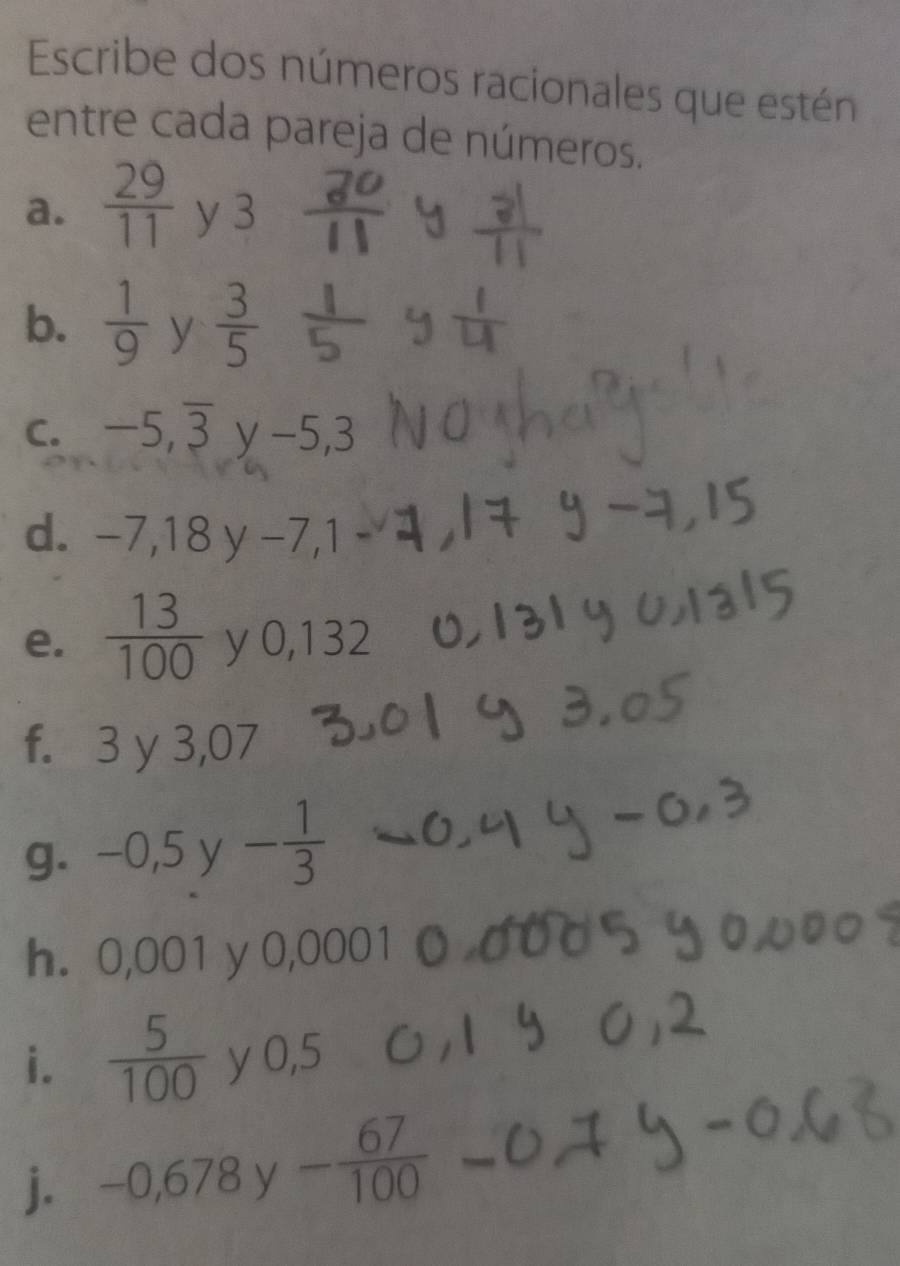 Escribe dos números racionales que estén
entre cada pareja de números.
a. 29/11 y 3 30/11 y 31/11
b. 1/9 y 3/5 1/5 y 1/4
c. −5,3̅ y −5,3 No hay
d. −7,18 y −7,1 -7,17 y -7,15
e. 13/100 y 0,132 0,131 y 0,1315
f. 3 y 3,07 3.01 y 3.05
g. −0,5 y −1/3 -0,4 y -0,3
h. 0,001 y 0,0001 0.0005 y 0,0008
i. 5/100 y 0,5 0,1 y 0,2
j. −0,678 y −67/100 -0.7 y -0,68